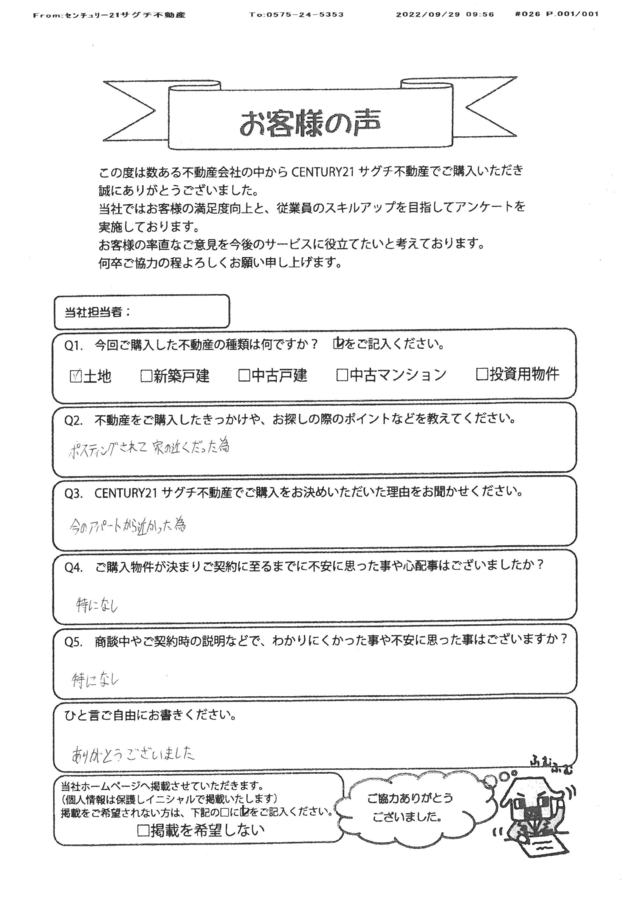 From:センチュリー21サグチ不動産 To:0575-24-5353 2022/09/29 09:56 #026 P.001/001
お客様の声
この度は数ある不動産会社の中から CENTURY21 サグチ不動産でご購入いただき
誠にありがとうございました。
当社ではお客様の満足度向上と、従業員のスキルアップを目指してアンケートを
実施しております。
お客様の率直なご意見を今後のサービスに役立てたいと考えております。
何卒ご協力の程よろしくお願い申し上げます。
当社担当者：
Q1. 今回ご購入した不動産の種類は何ですか？ ☑をご記入ください。
☑土地 □新築戸建 □中古戸建 □中古マンション □投資用物件
Q2. 不動産をご購入したきっかけや、お探しの際のポイントなどを教えてください。
ポスティングされて 家の近くだった為
Q3. CENTURY21 サグチ不動産でご購入をお決めいただいた理由をお聞かせください。
今のアパートから近かった為
Q4. ご購入物件が決まりご契約に至るまでに不安に思った事や心配事はございましたか？
特になし
Q5. 商談中やご契約時の説明などで、わかりにくかった事や不安に思った事はございますか？
特になし
ひと言ご自由にお書きください。
ありがとうございました
当社ホームページへ掲載させていただきます。
（個人情報は保護しイニシャルで掲載いたします）
掲載をご希望されない方は、下記の□に☑をご記入ください。
□掲載を希望しない
ご協力ありがとう
ございました。
ふむふむ